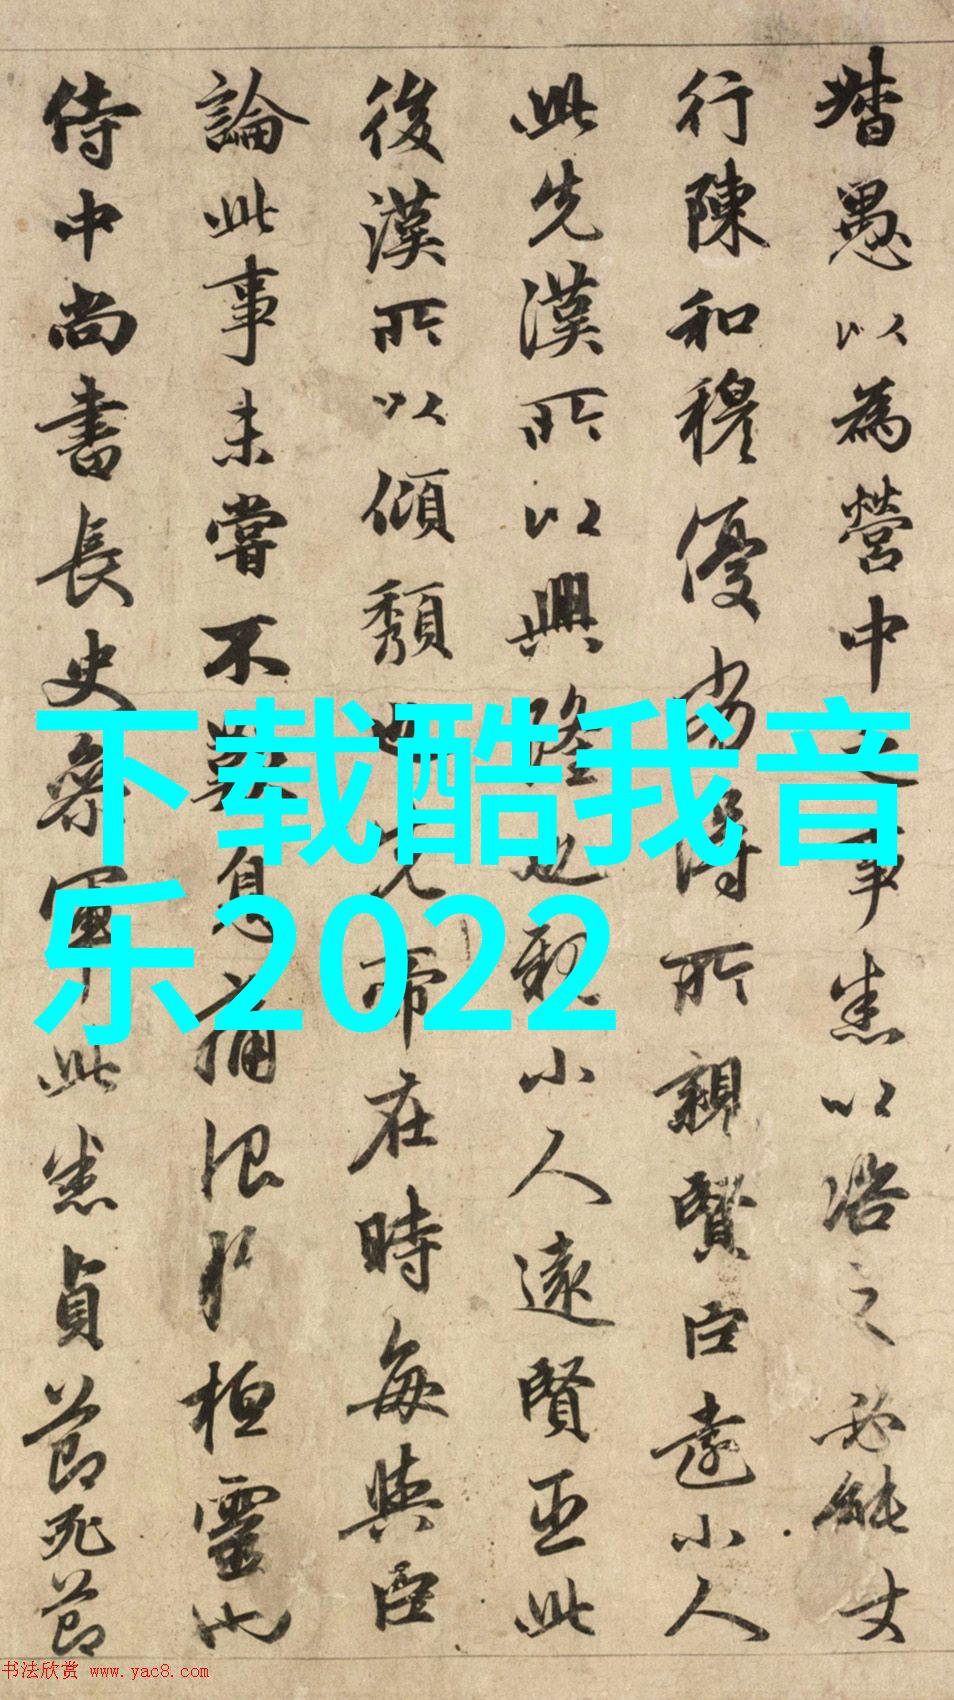 督愚以為營中之事悉以咨之必能丈
行陳和穆優劣得所親賢臣遠小人
此先漢所以興隆也親小人遠賢臣此
後漢所以傾頹也先帝在時每與臣
論此事未嘗不歎息痛恨於桓靈也
侍中尚書長史參軍此悉貞節死節
下载酷我音
乐2022
书法欣赏 www.yac8.com